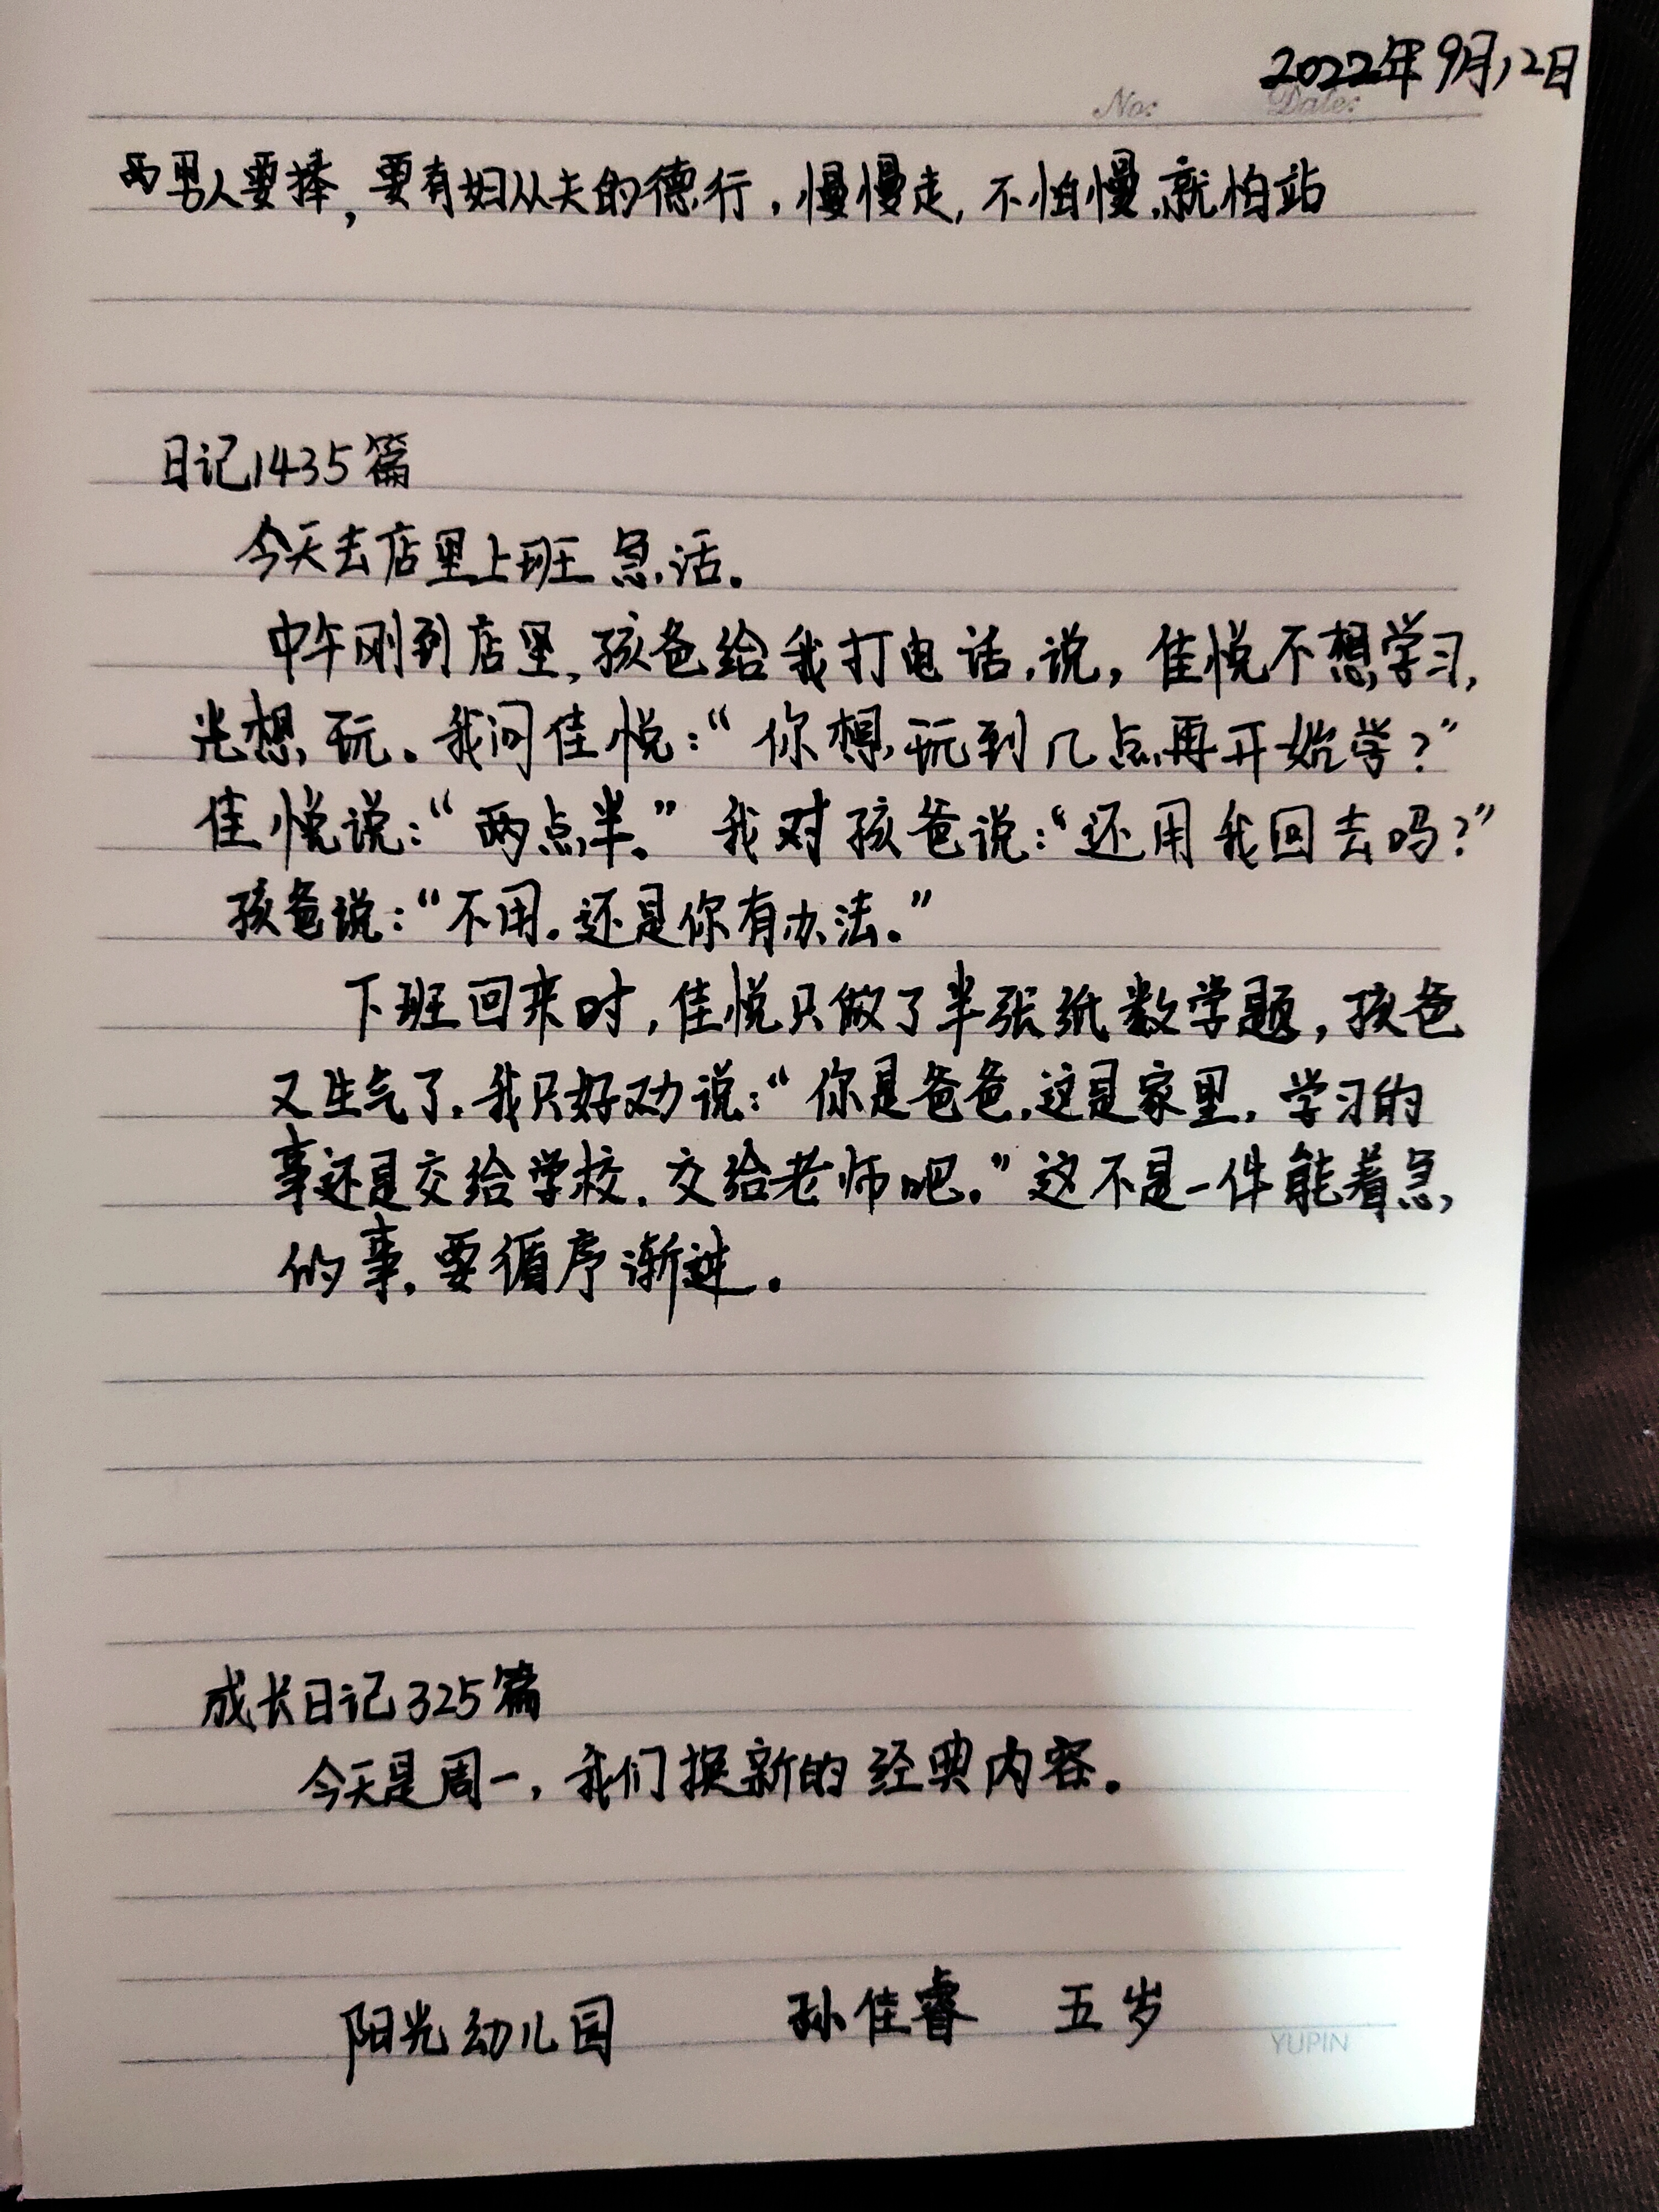 2022年9月12日
No: Date:
两男人要捧,要有妇从夫的德行,慢慢走,不怕慢,就怕站
日记1435篇
今天去店里上班 急活。
中午刚到店里,孩爸给我打电话,说,佳悦不想学习,
光想玩。我问佳悦:“你想玩到几点再开始学?”
佳悦说:“两点半。”我对孩爸说:“还用我回去吗?”
孩爸说:“不用。还是你有办法。”
下班回来时,佳悦只做了半张纸数学题,孩爸
又生气了,我只好劝说:“你是爸爸,这是家里,学习的
事还是交给学校,交给老师吧。”这不是一件能着急
的事,要循序渐进。
成长日记325篇
今天是周一,我们换新的经典内容。
阳光幼儿园 孙佳睿 五岁
YUPIN